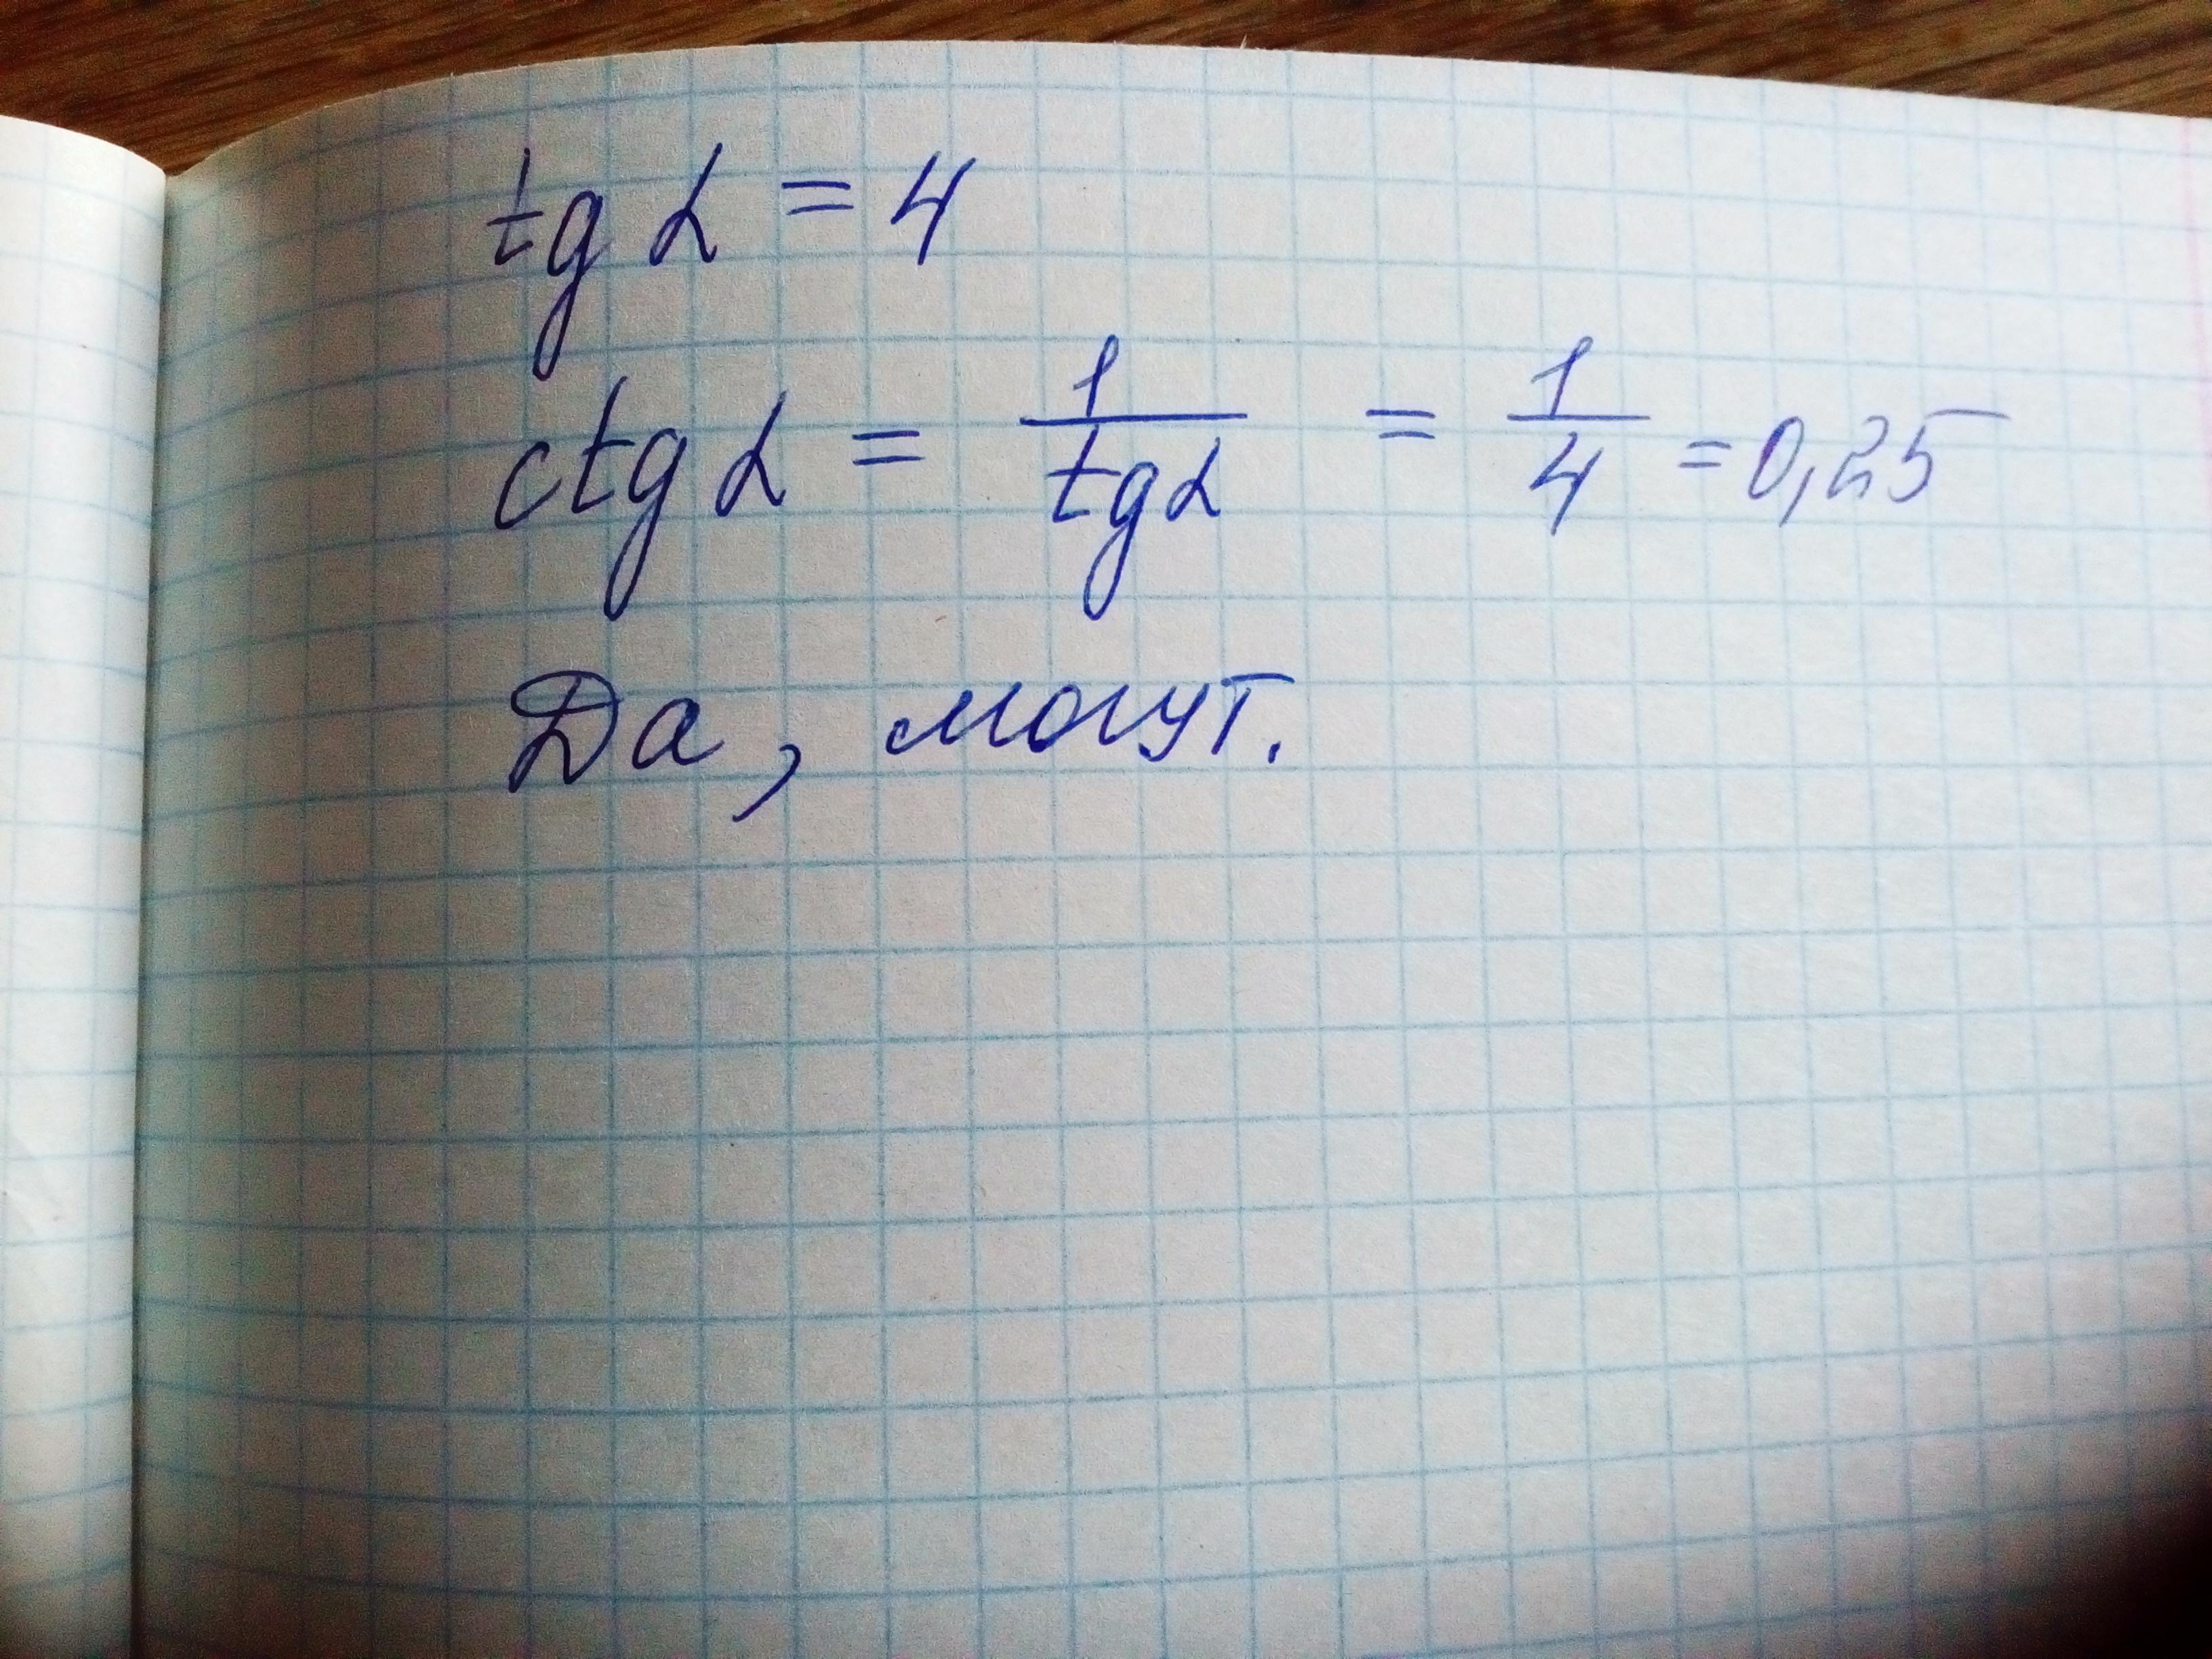 tg α = 4
ctg α = 1/tg α = 1/4 = 0,25
Да, могут.